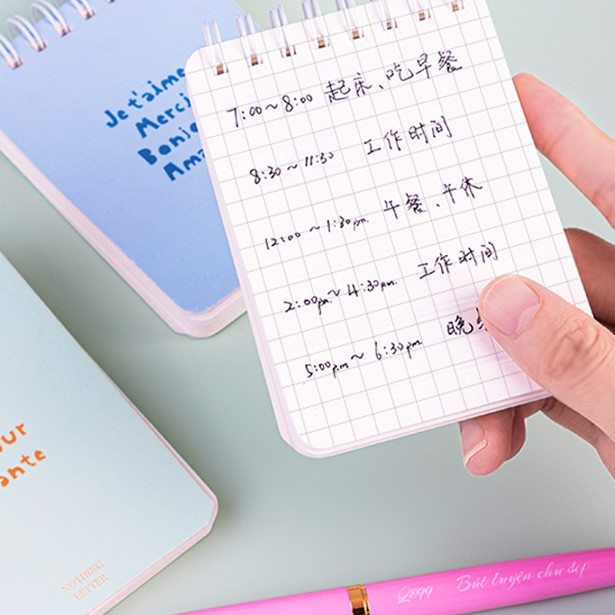 Je t'aime
Merci
Bonjo
Ama
7:00~8:00 起床、吃早餐
8:30~11:30 工作时间
12:00~1:30pm. 午餐、午休
2:00pm.~4:30pm. 工作时间
5:00pm~6:30pm. 晚
ur
ante
NOTHING
LETTER
Q299 Bút luyện chữ đẹp